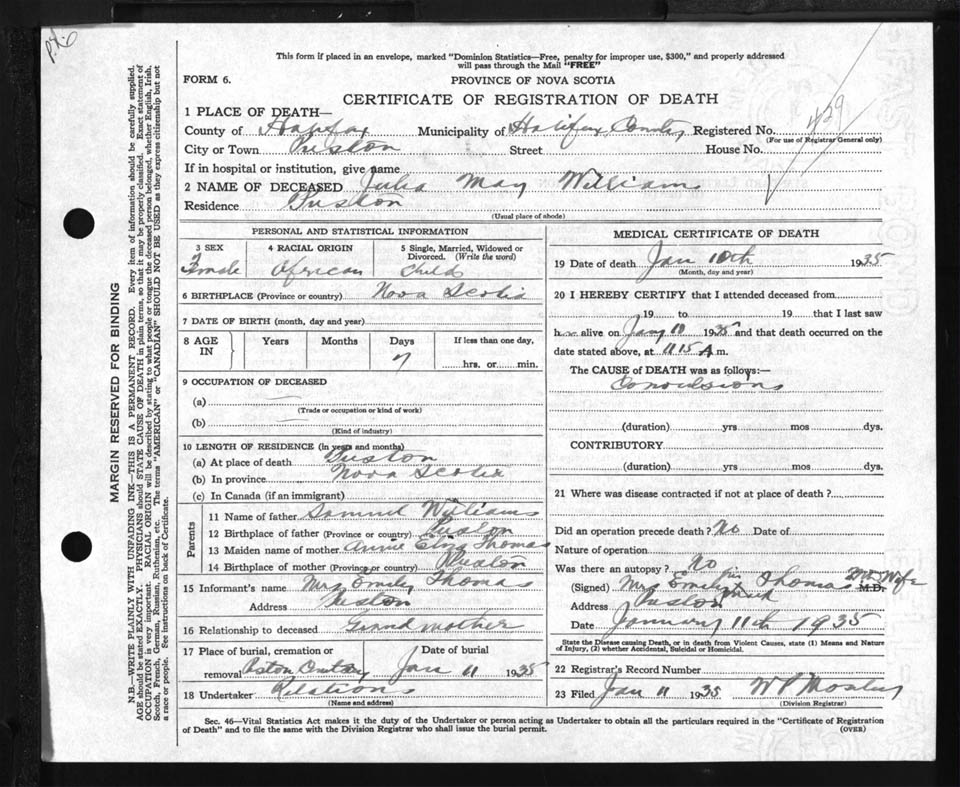 P.26
This form if placed in an envelope, marked "Dominion Statistics—Free, penalty for improper use, $300," and properly addressed
will pass through the Mail "FREE"
FORM 6.
PROVINCE OF NOVA SCOTIA
CERTIFICATE OF REGISTRATION OF DEATH
1 PLACE OF DEATH—
County of Halifax Municipality of Halifax County Registered No. 429
(For use of Registrar General only)
City or Town Preston Street House No.
If in hospital or institution, give name
2 NAME OF DECEASED Julia May Williams
Residence Preston
(Usual place of abode)
PERSONAL AND STATISTICAL INFORMATION
3 SEX
Female
4 RACIAL ORIGIN
African
5 Single, Married, Widowed or
Divorced. (Write the word)
Child
6 BIRTHPLACE (Province or country) Nova Scotia
7 DATE OF BIRTH (month, day and year)
8 AGE
IN
Years Months Days If less than one day,
7 hrs. or min.
9 OCCUPATION OF DECEASED
(a)
(Trade or occupation or kind of work)
(b)
(Kind of industry)
10 LENGTH OF RESIDENCE (in years and months)
(a) At place of death Preston
(b) In province Nova Scotia
(c) In Canada (if an immigrant)
Parents
11 Name of father Samuel Williams
12 Birthplace of father (Province or country) Preston
13 Maiden name of mother Annie Eliza Thomas
14 Birthplace of mother (Province or country) Preston
15 Informant's name Mrs Emiley Thomas
Address Preston
16 Relationship to deceased Grand mother
17 Place of burial, cremation or Date of burial
removal Jan 11 1935
18 Undertaker Relations
(Name and address)
MEDICAL CERTIFICATE OF DEATH
19 Date of death Jan 10th 1935
(Month, day and year)
20 I HEREBY CERTIFY that I attended deceased from
19 to 19 that I last saw
h alive on Jany 10 1935 and that death occurred on
the date stated above, at 11 15 A m.
The CAUSE of DEATH was as follows:—
Convulsions
(duration) yrs mos dys.
CONTRIBUTORY
(duration) yrs mos dys.
21 Where was disease contracted if not at place of death?
Did an operation precede death? No Date of
Nature of operation
Was there an autopsy? No
(Signed) Mrs Emily Thomas Mid Wife M.D.
Address Preston
Date January 11th 1935
State the Disease causing Death, or in death from Violent Causes, state (1) Means and Nature
of Injury, (2) whether Accidental, Suicidal or Homicidal.
22 Registrar's Record Number
23 Filed Jan 11 1935 W P Mosley
(Division Registrar)
Sec. 46—Vital Statistics Act makes it the duty of the Undertaker or person acting as Undertaker to obtain all the particulars required in the "Certificate of Registration
of Death" and to file the same with the Division Registrar who shall issue the burial permit. (OVER)
MARGIN RESERVED FOR BINDING
N.B.—WRITE PLAINLY WITH UNFADING INK—THIS IS A PERMANENT RECORD. Every item of information should be carefully supplied.
AGE should be stated EXACTLY. PHYSICIANS should STATE CAUSE OF DEATH in plain terms, so that it may be properly classified. Exact statement of
OCCUPATION is very important. RACIAL ORIGIN will be described by stating to what people or tongue the deceased person belonged, whether English, Irish,
Scotch, French, German, Russian, Ruthenian, etc. The terms "AMERICAN" or "CANADIAN" SHOULD NOT BE USED as they express citizenship but not
a race or people. See instructions on back of Certificate.